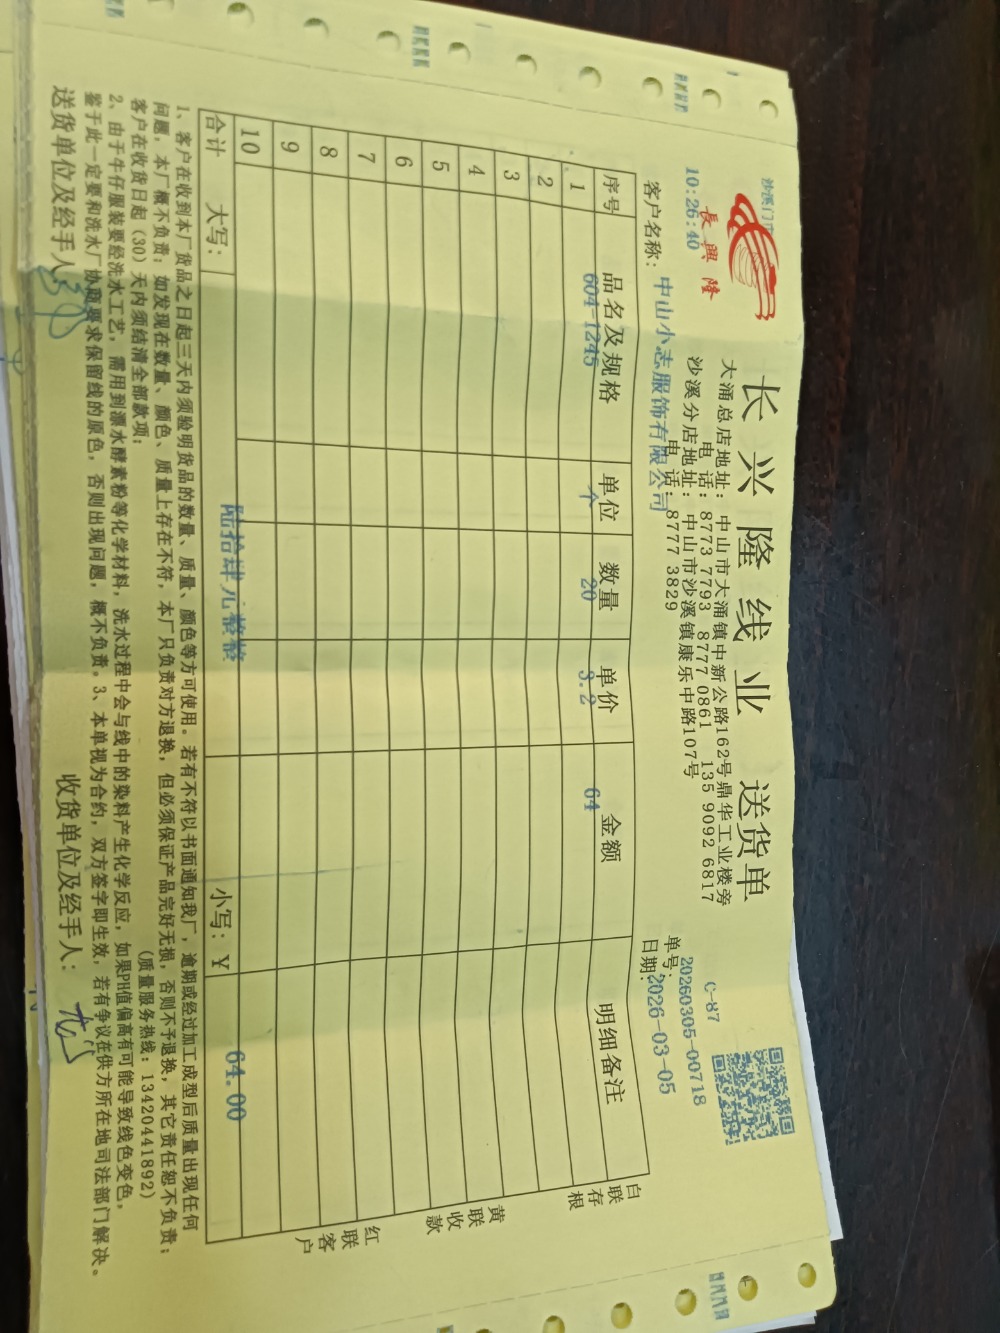 沙溪门市
10:26:40
長興隆
长兴隆线业 送货单
大涌总店地址：中山市大涌镇中新公路162号鼎华工业楼旁
电 话：8773 7793 8777 0861 135 9092 6817
沙溪分店地址：中山市沙溪镇康乐中路107号
电 话：8777 3829
C-87
单号：20260305-00718
日期：2026-03-05
客户名称：中山小志服饰有限公司
序号 品名及规格 单位 数量 单价 金额 明细备注
1 604-1245 个 20 3.2 64
2
3
4
5
6
7
8
9
10
合计 大写：陆拾肆元整整 小写：￥ 64.00
白联存根
黄联收款
红联客户
1、客户在收到本厂货品之日起三天内须验明货品的数量、质量、颜色等方可使用。若有不符以书面通知我厂，逾期或经过加工成型后质量出现任何
问题，本厂概不负责；如发现在数量、颜色、质量上存在不符，本厂只负责对方退换，但必须保证产品完好无损，否则不予退换，其它责任恕不负责；
客户在收货日起（30）天内须结清全部款项； （质量服务热线：13420441892）
2、由于牛仔服装要经洗水工艺，需用到漂水酵素粉等化学材料，洗水过程中会与线中的染料产生化学反应，如果PH值偏高有可能导致线色变色，
鉴于此一定要和洗水厂协商要求保留线的原色，否则出现问题，概不负责。3、本单视为合约，双方签字即生效，若有争议在供方所在地司法部门解决。
送货单位及经手人： 收货单位及经手人：